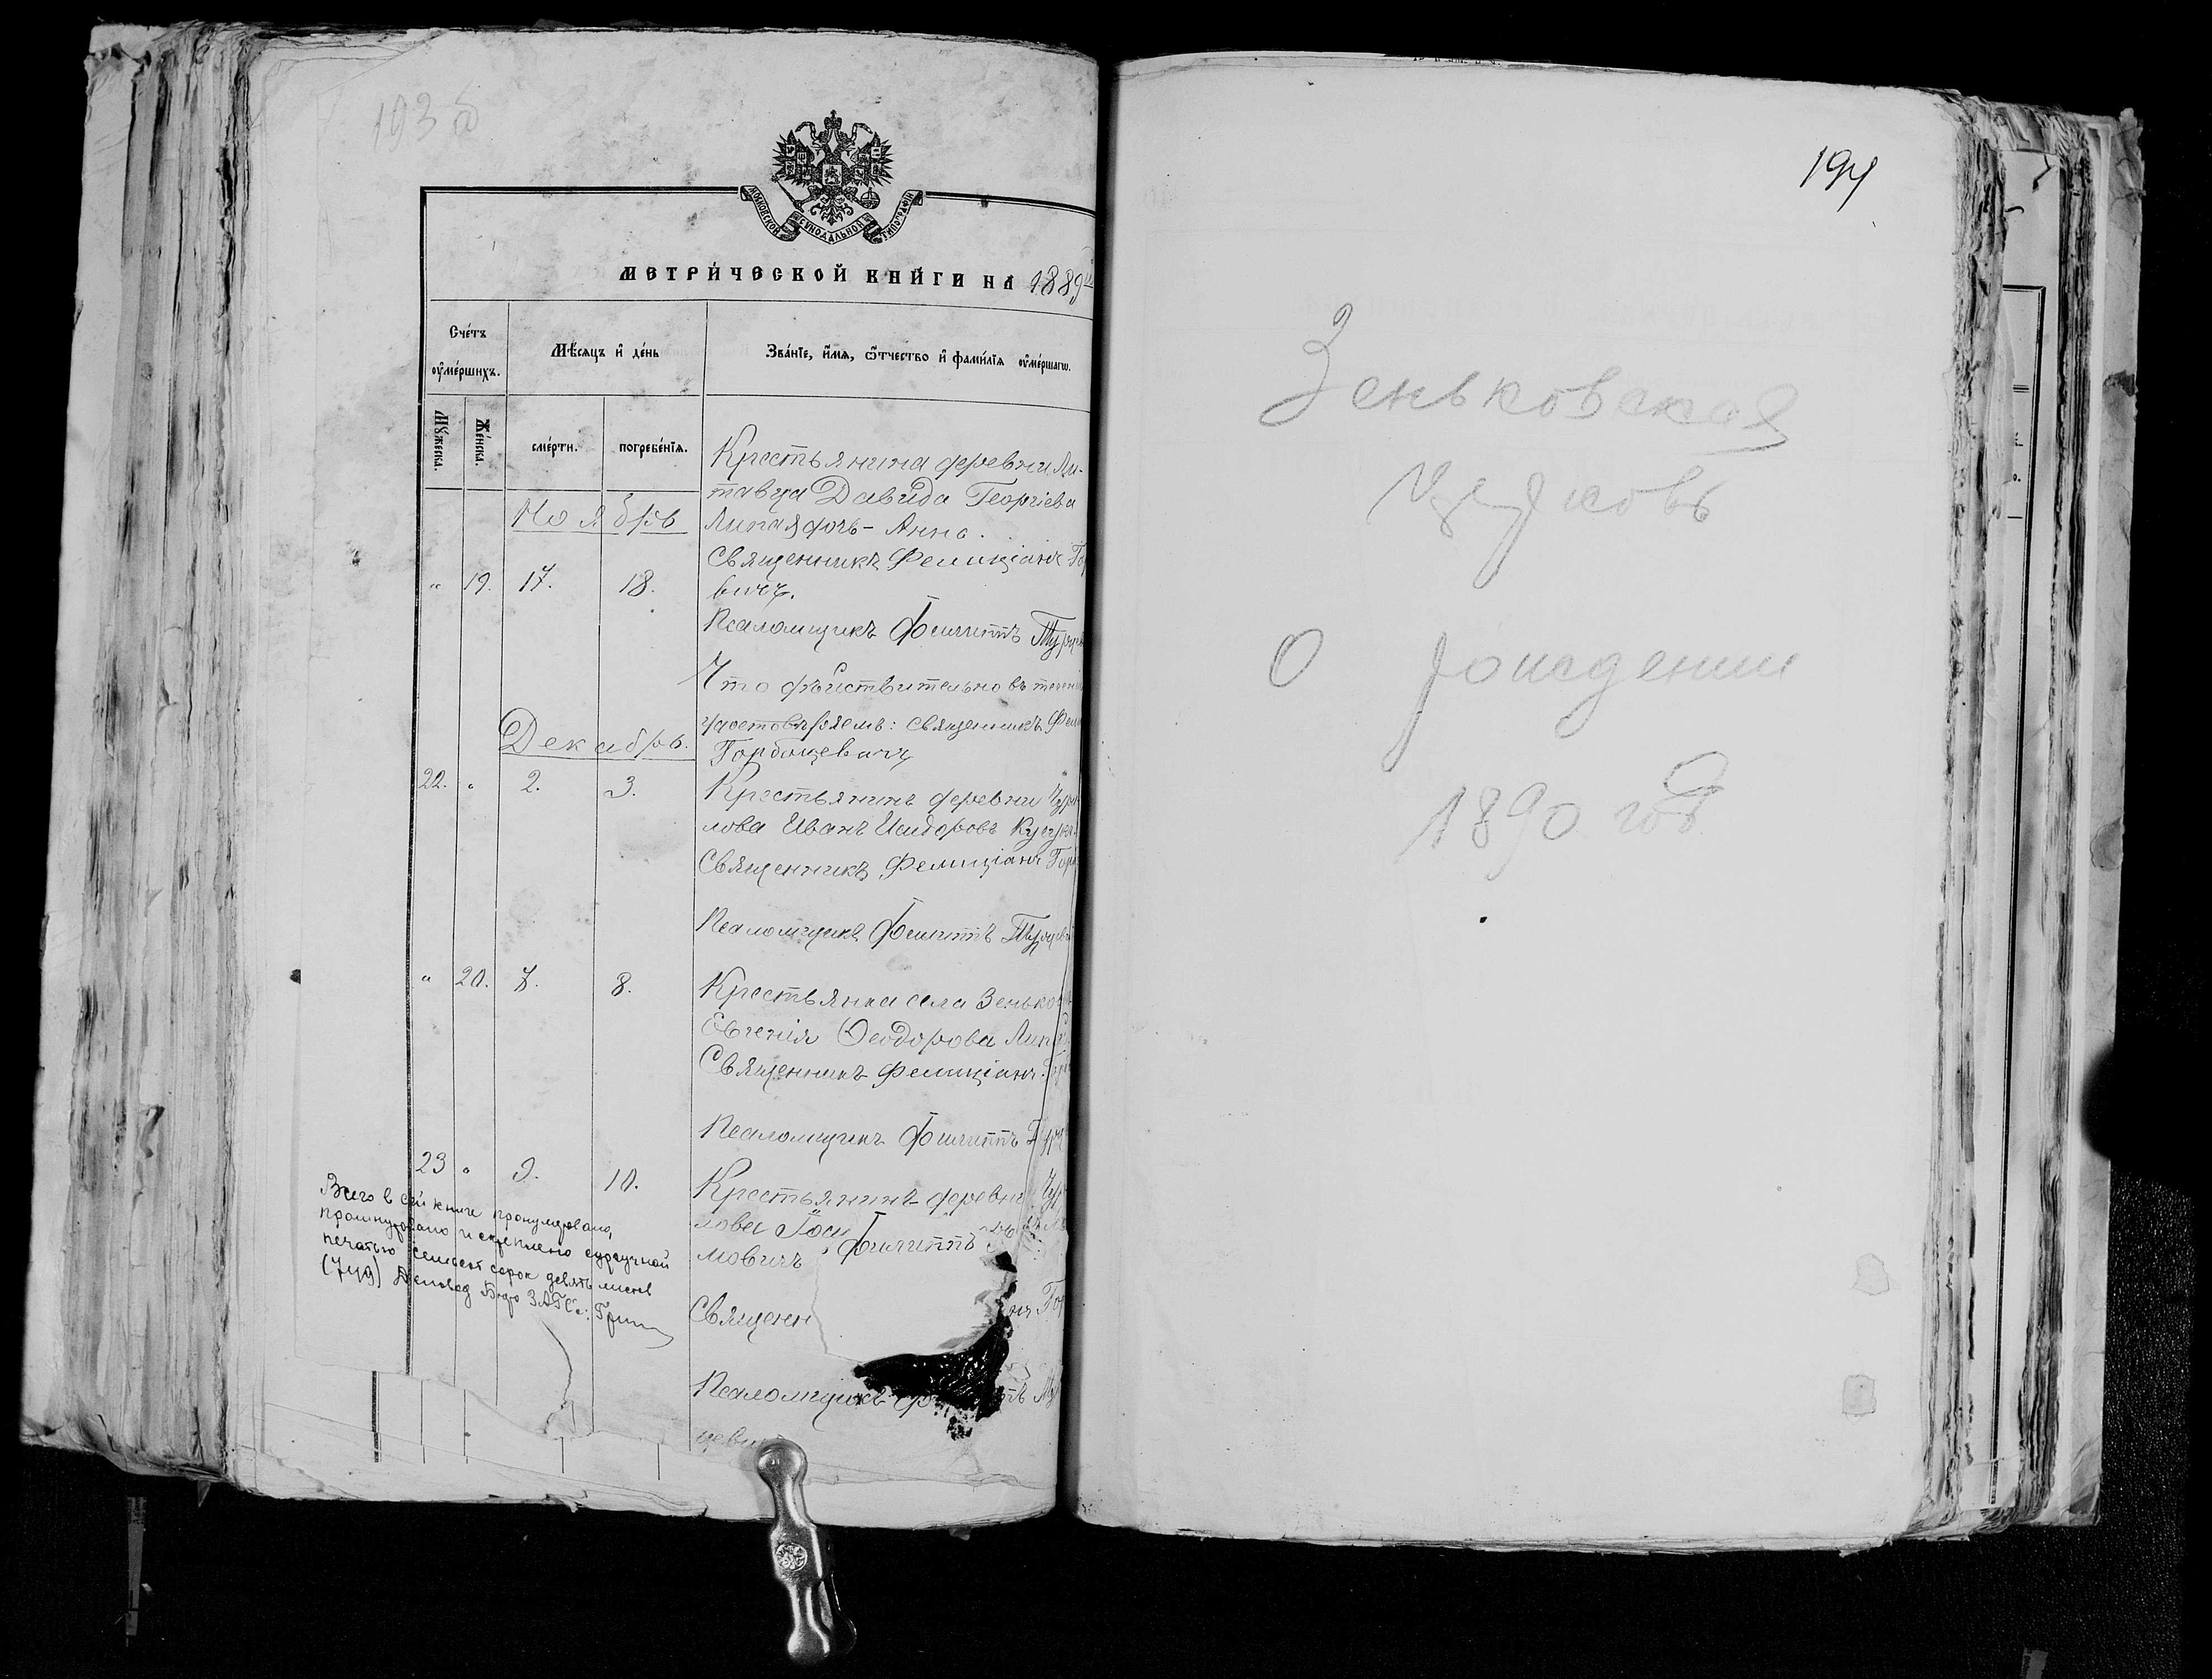 193 б
МОСКОВСКОЙ СѴНОДАЛЬНОЙ ТИПОГРАФІИ
МЕТРИ́ЧЕСКОЙ КНИ́ГИ НА 1889й
Сче́тъ ᲂу҆ме́ршихъ.
Мѣ́сяцъ и҆ де́нь
Зва́нїе, и҆́мя, ѻ҆́тчество и҆ фами́лїя ᲂу҆ме́ршагѡ.
Мꙋ́жеска.
Же́нска.
сме́рти.
погребе́нїя.
Крестьянина деревни Ли-
тавца Давида Георгіева
Ноябрь
Липая дочь - Анна.
„ 19. 17. 18.
Священникъ Фелиціанъ Гор
вичъ.
Псаломщикъ Филиппъ Турце
Что дѣйствительно въ течені
удостовѣряемъ: священникъ Фели
Горбацевичъ
Декабрь.
22. „ 2. 3.
Крестьянинъ деревни Чури-
лова Иванъ Исидоровъ
Священникъ Фелиціанъ Горб
Псаломщикъ Филиппъ Турцеви
„ 20. 7. 8.
Крестьянка села Зеньков
Евгенія Ѳеодорова Липа
Священникъ Фелиціанъ Горб
Псаломщикъ Филиппъ Турц
23 „ 9. 10.
Крестьянинъ деревни Чур
лова Іоси
мовичъ Филиппъ
Священн нъ Гор
Псаломщикъ Ф
цеви
Всего в сей книге пронумеровано,
прошнуровано и скреплено сургучной
печатью семьсот сорок девять листов
(749) Деловод Бюро ЗАГС:
194
Зеньковская
церковь
О рождении
1890 год